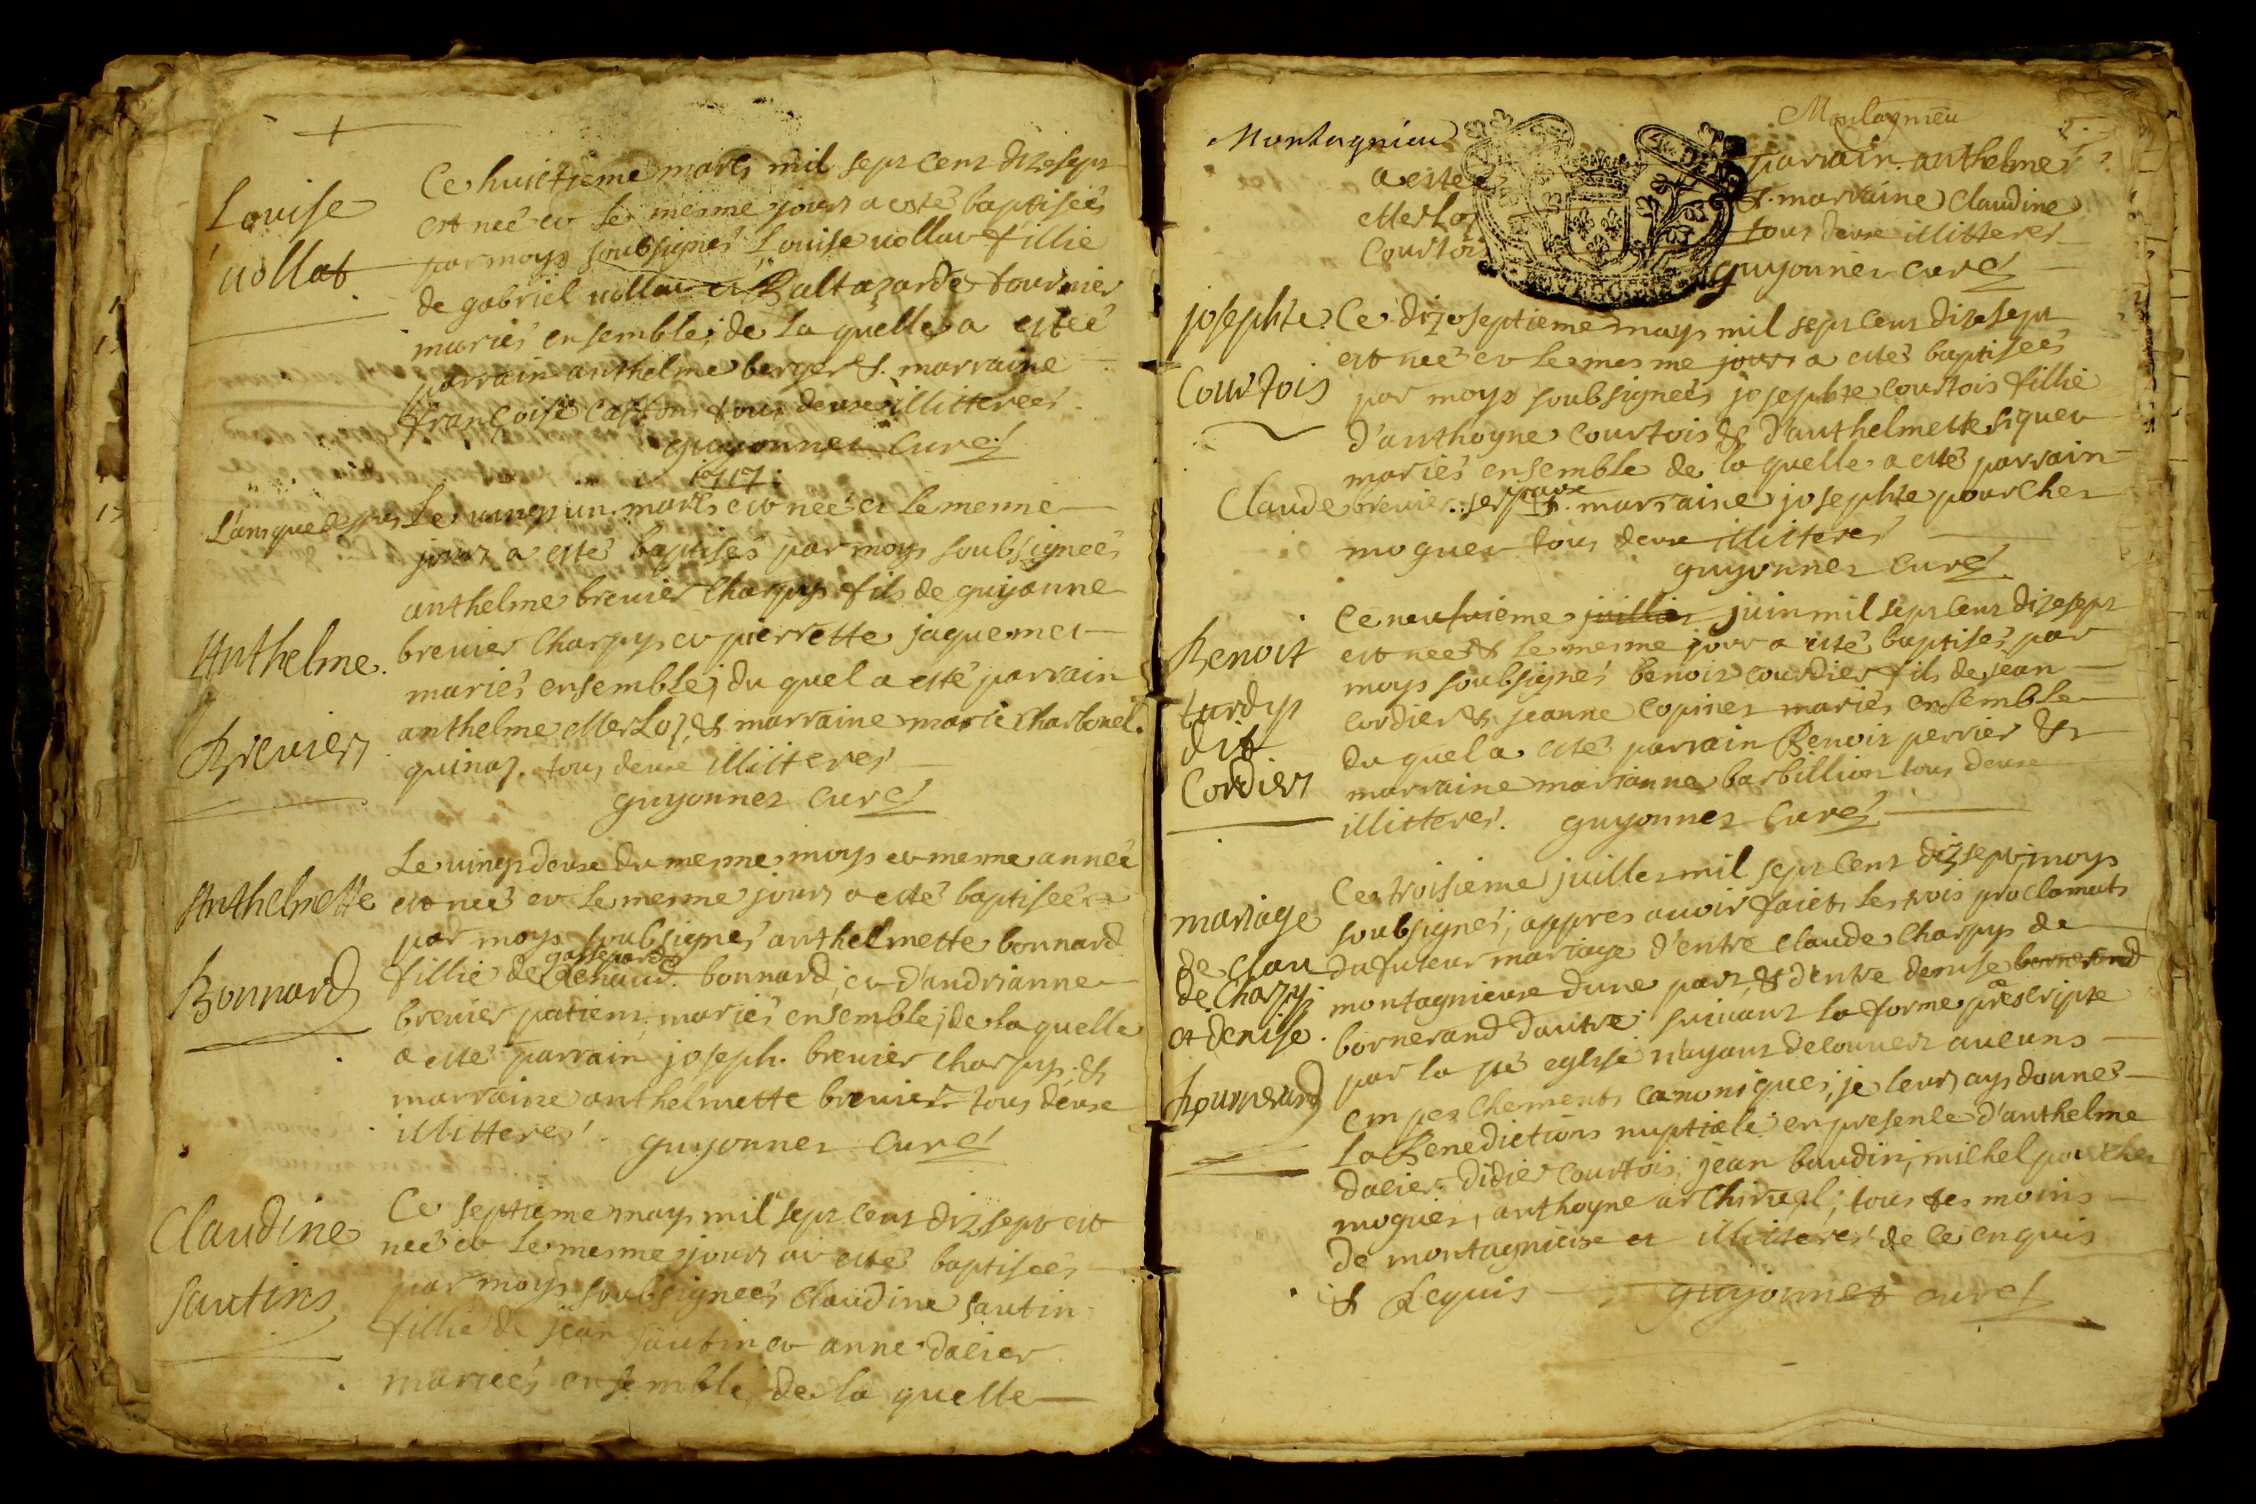 Louise
vollat
Ce huictieme mars mil sept cent dizesept
est neé et le mesme jour a esté baptiseé
par moys soubsigné Louise vollat fillie
de gabriel vollat et Baltazarde tournier
mariés ensemble; de la quelle a esteé
parrain anthelme berger &. marraine
françoise tous deux illitereés
guyonnet Curé
1717
Le vingt un mars est neé et le mesme
jour a esté baptisés par moys soubsigneés
Anthelme
Brevier
anthelme brevier Charpy fils de guijonne
brevier Charpy et pierrette jaquemet
mariés ensemble; du quel a esté parrain
anthelme Merloz, & marraine marie Charbonel.
quinaz. tous deux illitteres
guyonnet Curé
Anthelmette
Bonnard
Le vingt deux du mesme moys et mesme anneé
est neé et le mesme jour a esté baptiseé
par moys soubsigné anthelmette bonnard
gasspard
fillie de Renaud bonnard, et d'andrianne
brevier patient mariés ensemble; de la quelle
a esté parrain joseph. brevier Charpy. &
marraine anthelmette brevier tous deux
illitteres. guyonnet Curé
Claudine
sautins
Ce septieme mays mil sept cent dizsept est
neé et le mesme jour at esté baptiseés
par moys soubsigneés Claudine sautin
fillie de jean sautin et anne dacier
marieés ensemble de la quelle
Montagnieu
Montagnieu
a esteé parrain anthelme
Merloz &. marraine Claudine
Courtois tous deux illitteres
guyonnet curé
josephte
Courtois
Ce dizeseptieme mays mil sept cent dizesept
est neé et le mesme jour a estés baptiseés
par moys soubsigneés josephte courtois fillie
d'anthoyne courtois & d'anthelmette siquet
mariés ensemble de la quelle a esté parrain
Claude brevier &. marraine josephte pourchet
moguet tous deux illitteres
guyonnet curé
Benoit
tardy
dit
Cordier
Ce neufvieme juillet juin mil sept cent dizesept
est neé & le mesme jour a esté baptisés par
moys soubsigné benoit cordier fils de jean
cordier & jeanne copinet mariés ensemble
du quel a esté parrain Benoit perrier &
marraine marianne barbillion tous deux
illitteres. guyonnet Curé
mariage
de Clau
de Charpy
et denise
Bournerand
Ce troisieme juillet mil sept cent dizsept moys
soubsigné; appres avoir faict les trois proclamats
du futeur mariage d'entre Claude Charpy de
montagnieux dune part & d'entre denise bornerand
bornerand dautre suivant la forme prescripte
par la ste eglise n'ayant decouvert aucuns
empeschements canoniques; je leur ay donnés
La Benediction nuptiale en presence d'anthelme
dacier. didier courtois, jean baudin, michel pourchet
moguet, anthoyne archirel; tous tesmoins
de montagnieux et illitterés de ce enquis
& Requis guyonnet curé